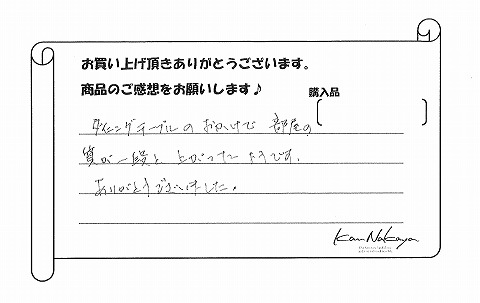 お買い上げ頂きありがとうございます。
商品のご感想をお願いします♪
購入品
ダイニングテーブルのおかげで 部屋の
質が一段と上がったようです。
ありがとうございました。
Kan Nakaya